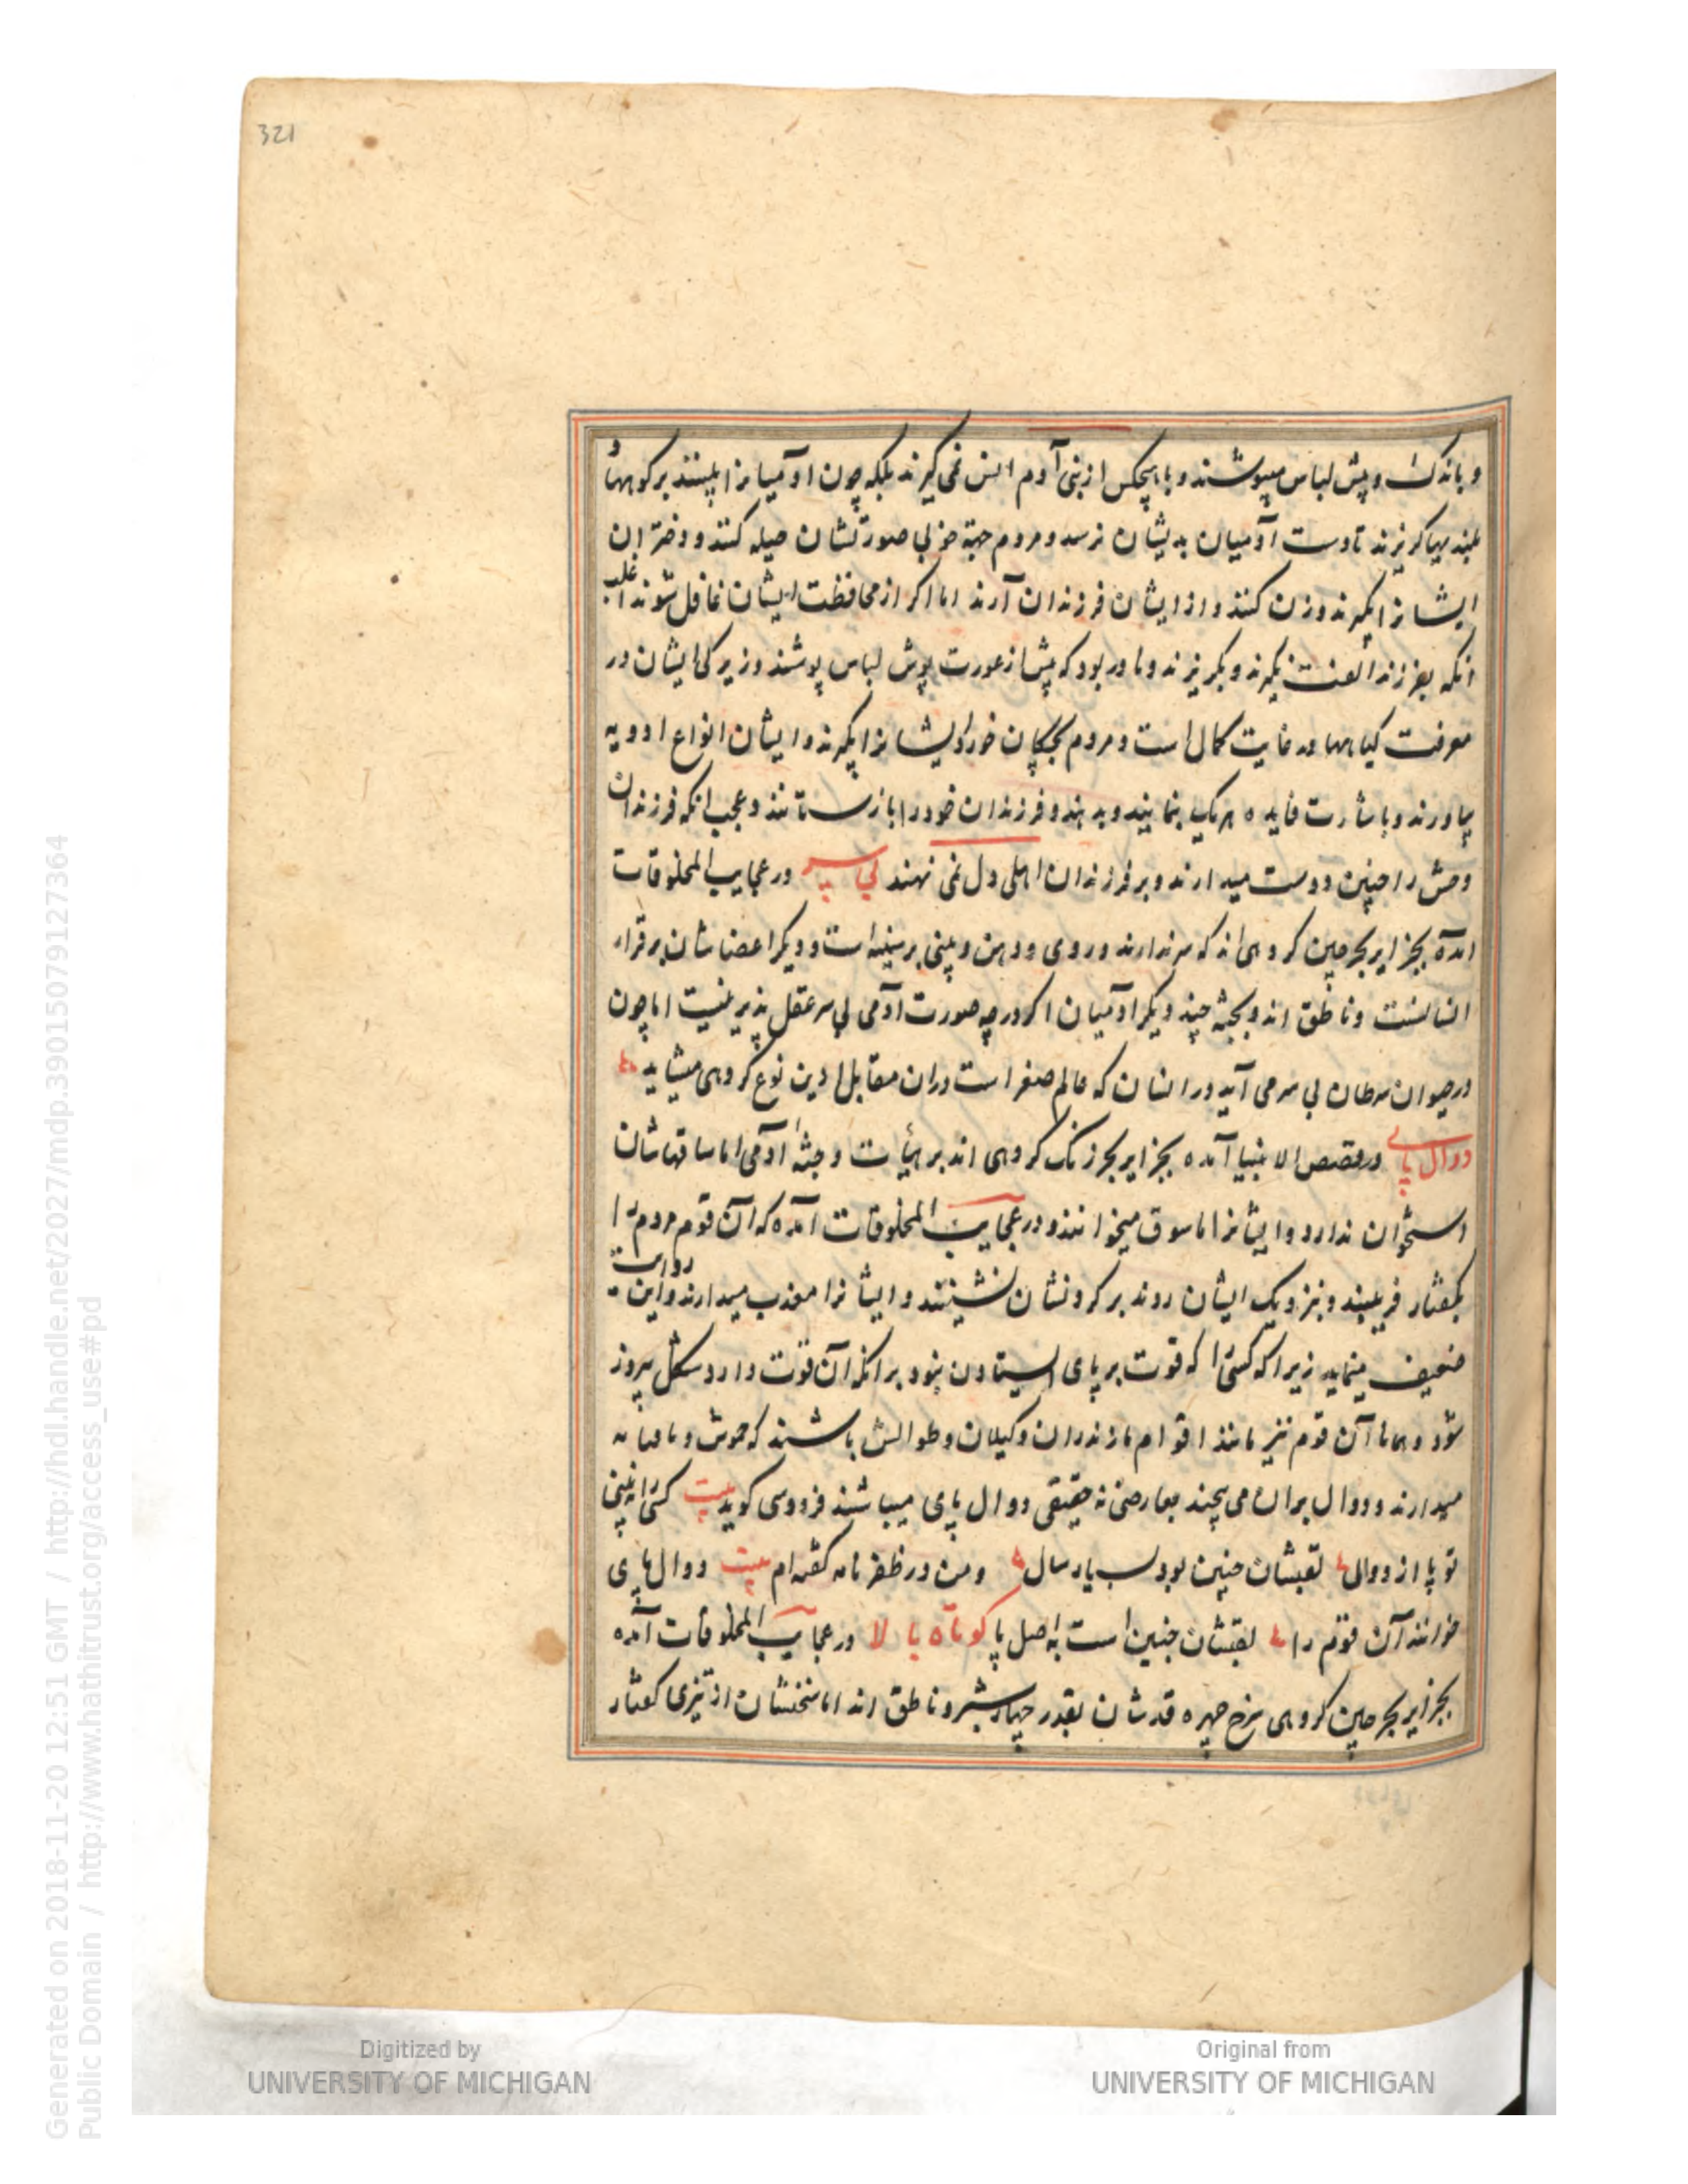 321
و باندک و پیش لباس میپوشند و با هیچکس از بنی آدم انس نمی گیرند بلکه چون آدمیانرا ببینند بر کوههاء
بلند گریزند تا دست آدمیان بدیشان نرسد و مردم جهة خوبی صورتشان حیله کنند و دختران
ایشانرا بگیرند و زن کنند و از ایشان فرزندان آرند اما اگر از محافظت ایشان غافل شوند اغلب
انکه بفرزند الفت نگیرند و بگریزند و نادر بود که پیش از عورت پوش لباس پوشند و زیرکی ایشان در
معرفت گیاهها در غایت کمال است و مردم بچگان خورد ایشانرا بگیرند و ایشان انواع ادویه
بیاورند و باشارت فایده هر یک بنمایند و بدهند و فرزندان خود را باز ستانند و عجب انکه فرزندان
وحش را چنین دوست میدارند و بر فرزندان اهلی دل نمی نهند بی سر در عجایب المخلوقات
آمده بجزایر بحر چین گروهی اند که سر ندارند و روی و دهن و بینی بر سینه است و دیگر اعضاشان برقرار
انسانست و ناطق اند و بجثه چند دیگر آدمیان اگرچه صورت آدمی بی سر عقل پذیر نیست اما چون
در حیوان سرطان بی سر می آید در انسان که عالم صغر است در ان مقابل ازین نوع گروهی میشاید
دوال پای در قصص الانبیا آمده بجزایر بحر زنگ گروهی اند بر هیأت و جثه آدمی اما ساقهاشان
استخوان ندارد و ایشانرا ماسوق میخوانند و در عجایب المخلوقات آمده که آن قوم مردم را
بگفتار فریبند و نزدیک ایشان روند بر گردنشان نشینند و ایشانرا معذب میدارند و این روایت
ضعیف مینماید زیرا که کسی را که قوت بر پای ایستادن نبود بر انکه آن قوت دارد مشکل پیروز
شود و همانا آن قوم نیز مانند اقوام مازندران و گیلان و طوالش باشند که چموش و پاتابه
میدارند و دوال بران می پیچند بعارضی نه حقیقی دوال پای میباشند فردوسی گوید بیت کسی را نبینی
تو پا از دوالی لقبشان چنین بود بسیار سال و من در ظفر نامه گفته ام بیت دوال پای
خوانند آن قوم را لقبشان چنین است به اصل پا کوتاه بالا در عجایب المخلوقات آمده
بجزایر بحر چین گروهی سرخ چهره قدشان بقدر چهار شبر و ناطق اند اما سخنشان از تیزی گفتار
Generated on 2018-11-20 12:51 GMT / http://hdl.handle.net/2027/mdp.39015079127364
Public Domain / http://www.hathitrust.org/access_use#pd
Digitized by
UNIVERSITY OF MICHIGAN
Original from
UNIVERSITY OF MICHIGAN